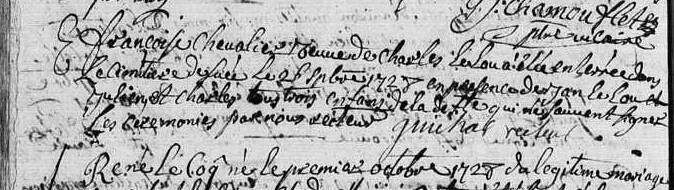 J. Chamouflet
ptre vicaire
Françoise Chevalier veuve de Charles le Lou a été enterrée dans
le cimitiere de lieu le 26 9bre 1728 en presence de Jan le Lou et
Julien et Charles tous trois enfans de la de qui ne sçavent signer
les ceremonies par nous recteur Guichal recteur
René le Coq né le premier octobre 1728 du legitime mariage